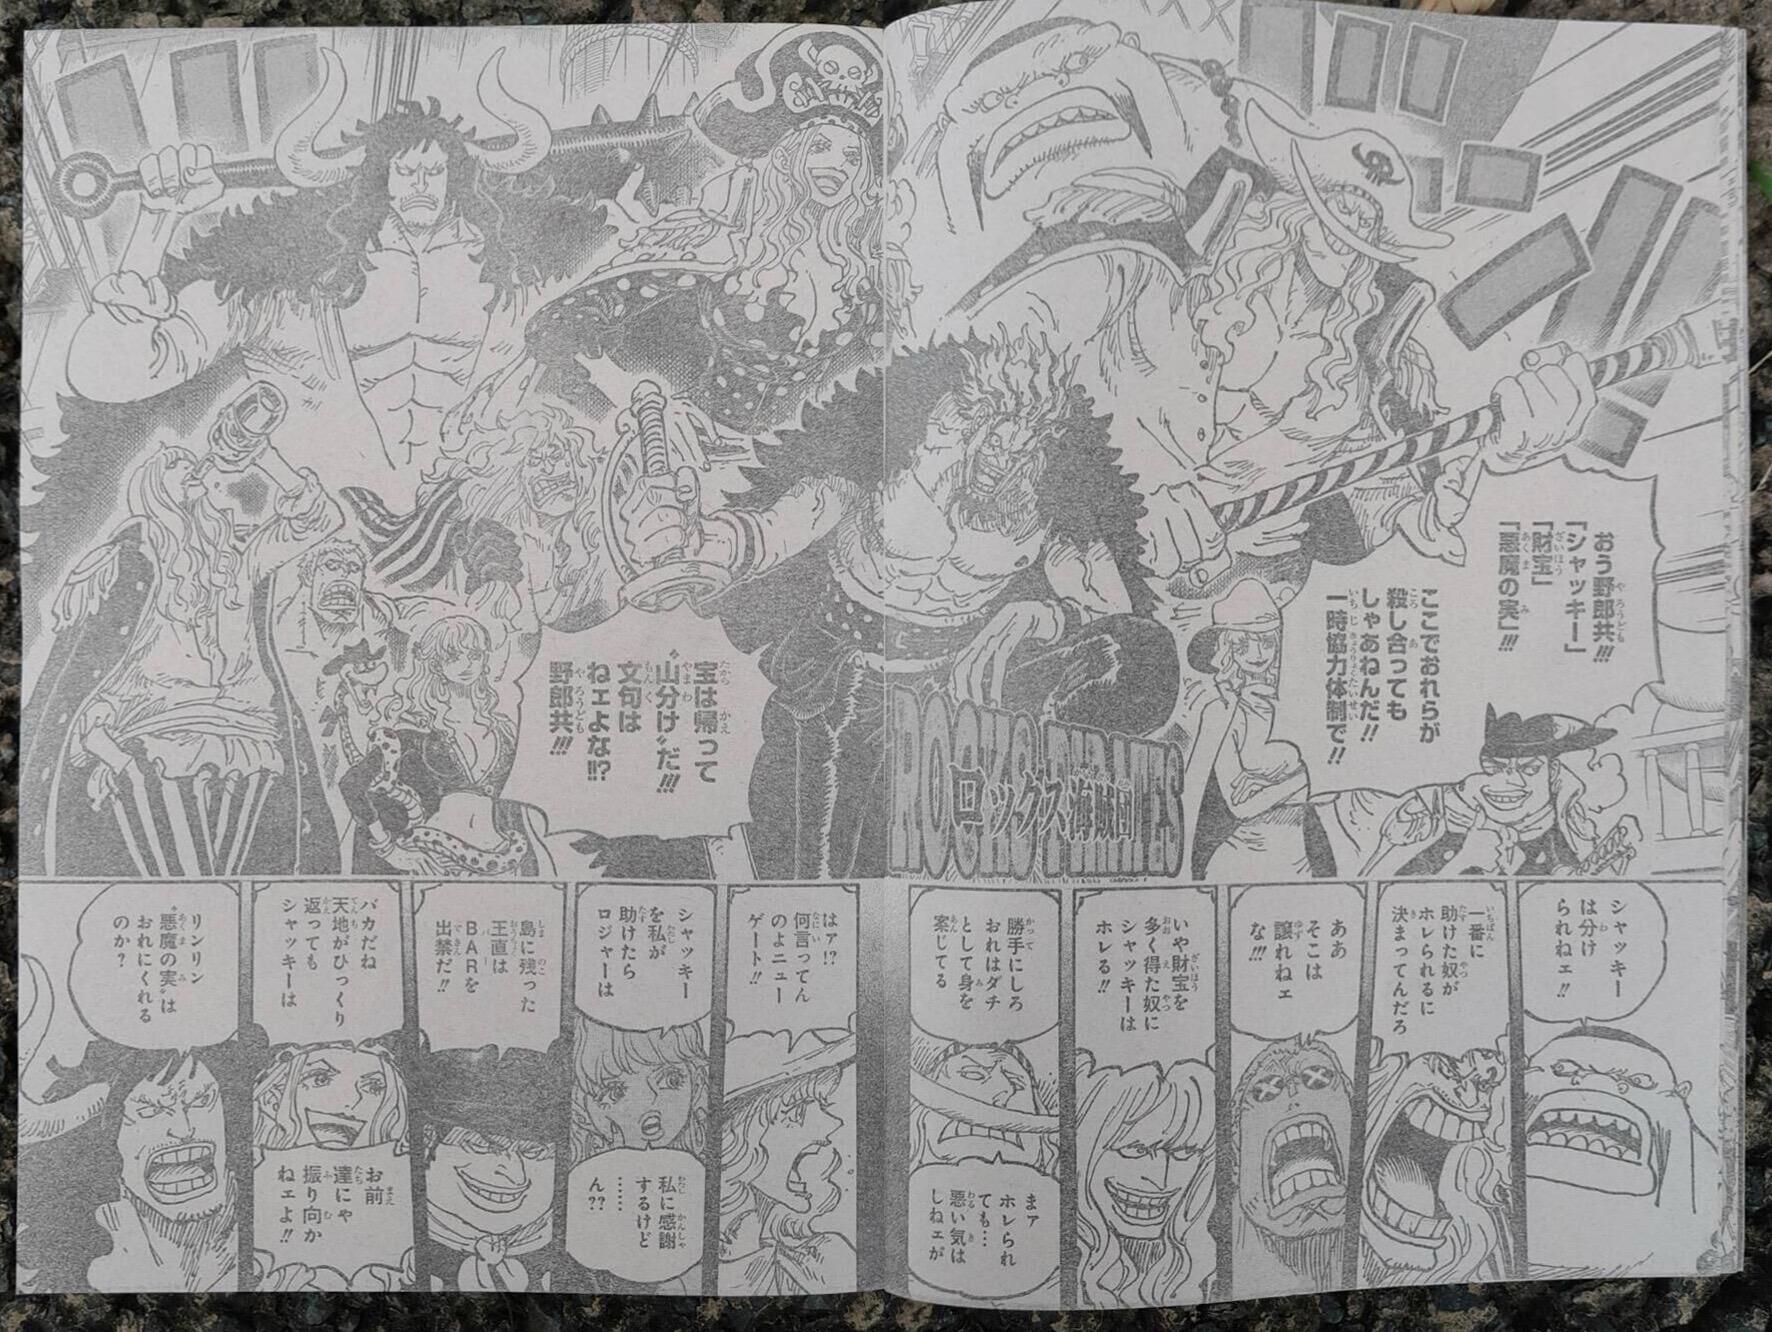 おう野郎共!!!
「シャッキー」
「財宝」
「悪魔の実」!!!
ここでおれらが
殺し合っても
しゃあねんだ!!
一時協力体制で!!
宝は帰って
〝山分け〟だ!!!
文句は
ねェよな!!?
野郎共!!!
ROCKS PIRATES
ロックス海賊団
シャッキー
は分け
られねェ!!
一番に
助けた奴が
ホレられるに
決まってんだろ
ああ
そこは
譲れねェ
な!!!
いや財宝を
多く得た奴に
シャッキーは
ホレる!!
勝手にしろ
おれはダチ
として身を
案じてる
まァ
ホレられ
ても…
悪い気は
しねェが
はァ!?
何言ってん
のよニュー
ゲート!!
シャッキー
を私が
助けたら
ロジャーは
私に感謝
するけど
……
ん??
島に残った
王直は
BARを
出禁だ!!
バカだね
天地がひっくり
返っても
シャッキーは
お前
達にゃ
振り向か
ねェよ!!
リンリン
〝悪魔の実〟は
おれにくれる
のか?